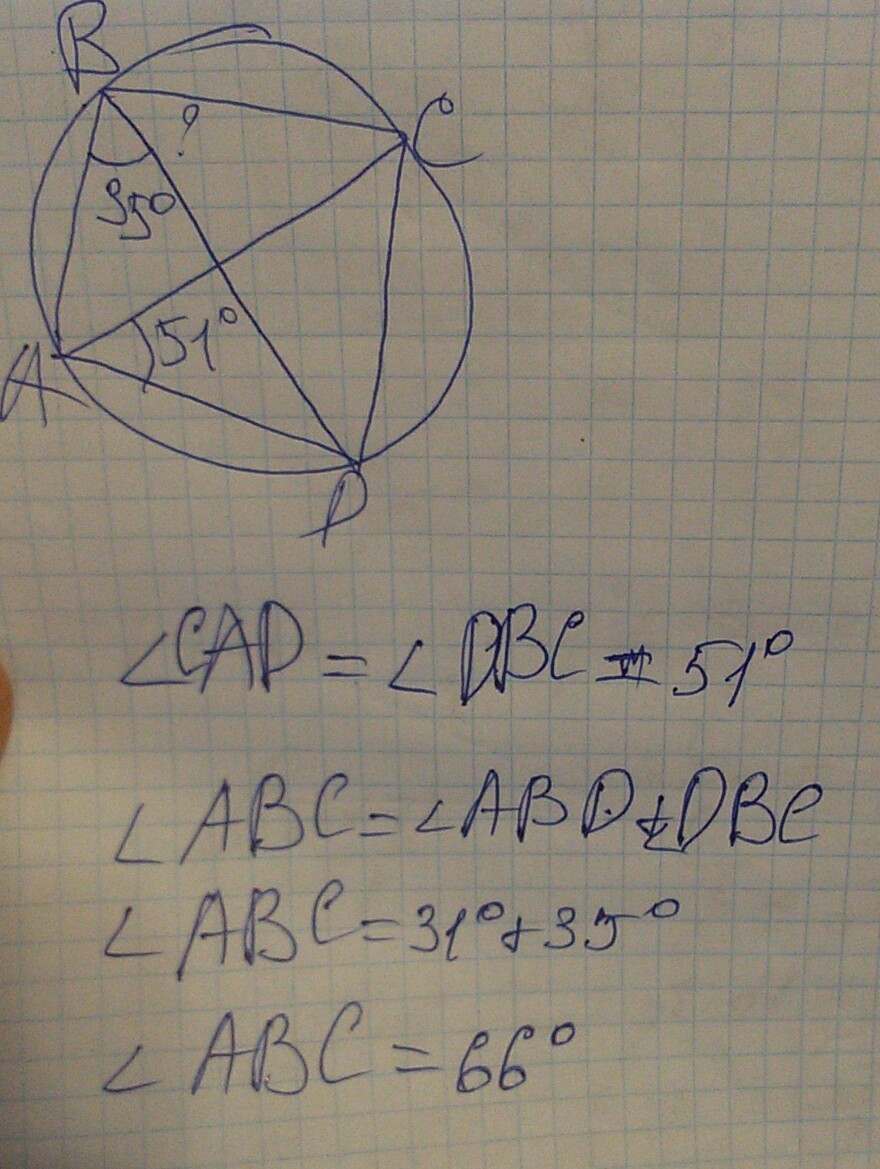 B
C
?
35°
51°
A
D
∠CAD = ∠DBC = 51°
∠ABC = ∠ABD + ∠DBC
∠ABC = 31° + 35°
∠ABC = 66°